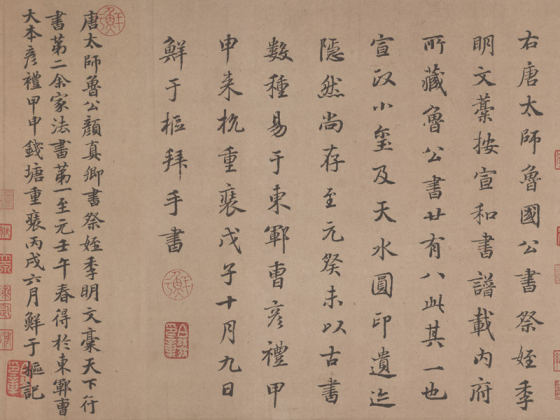 右唐太師魯國公書祭姪季
明文藁按宣和書譜載內府
所藏魯公書廿有八此其一也
宣政小璽及天水圓印遺迹
隱然尚存至元癸未以古書
數種易于東鄆曹彦禮甲
申来杭重裝戊子十月九日
鮮于樞拜手書
唐太師魯公顏真卿書祭姪季明文藁天下行
書第二余家法書第一至元壬午春得於東鄆曹
大本彦禮甲申錢塘重裝丙戌六月鮮于樞記